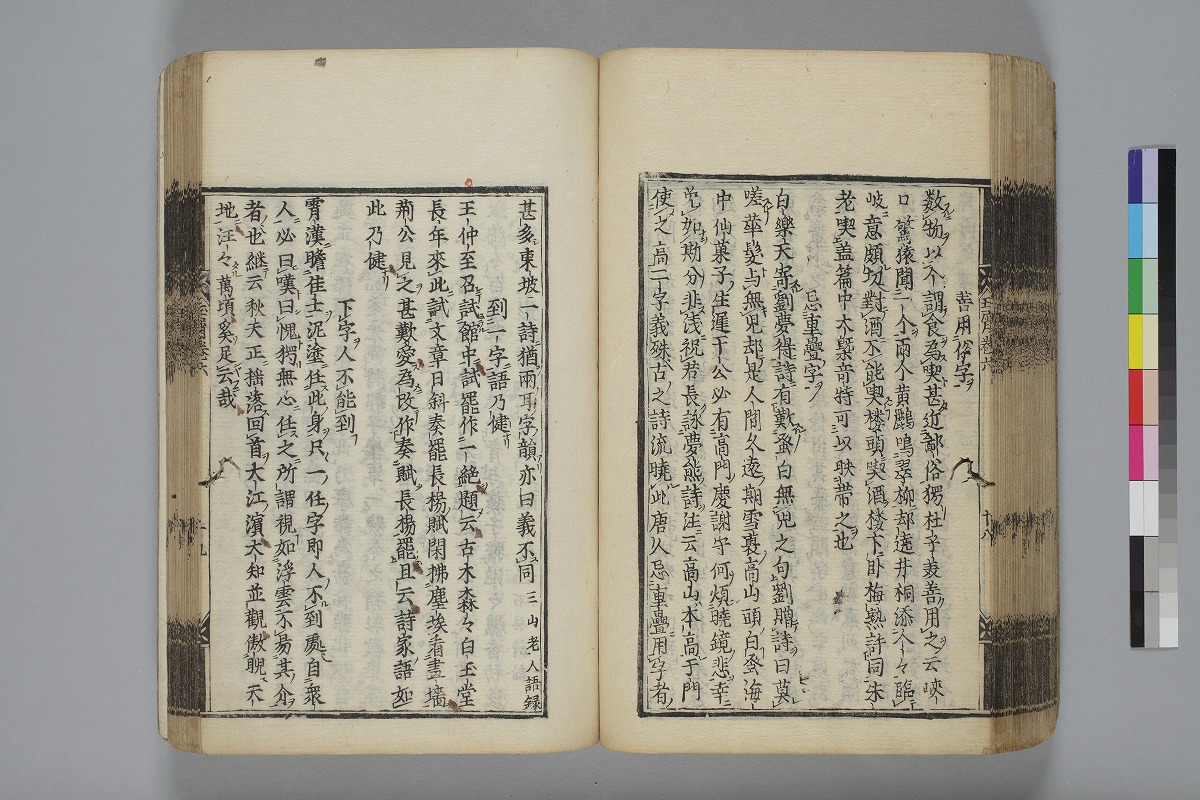 善用俗字
数物以个謂食為喫甚近鄙俗獨杜子美善用之云峽
口驚猿聞一个兩个黄鸝鳴翠柳却遶井桐添个々臨
岐意頗切對酒不能喫楼頭喫酒楼下卧梅熟許同朱
老喫盖篇中大槩竒特可以映帯之也
忌重疊字
白樂天寄劉夢得詩有歎蚤白無児之句劉贈詩曰莫
嗟華髮与無児却是人間久遠期雪裏高山頭白蚤海
中仙菓子生遲于公必有高門慶謝守何煩曉鏡悲幸
免如斯分非浅祝君長詠夢熊詩注云高山本高于門
使之高二字義殊古之詩流曉此唐人忌重疊用字者
甚多東坡一詩猶兩耳字韻亦曰義不同 三山老人語録
到一字語乃健
王仲至召試館中試罷作一絶題云古木森々白玉堂
長年來此試文章日斜奏罷長楊賦閑拂塵埃看畫墻
荊公見之甚歎愛為改作奏賦長楊罷且云詩家語如
此乃健
下字人不能到
霄漢瞻佳士泥塗任此身只一任字即人不到處自衆
人必曰嘆曰愧獨無心任之所謂視如浮雲不易其介
者也継云秋天正揺落回首大江濱大知並觀傲睨天
地汪々萬頃奚足云哉
玉屑卷六
十八
玉屑卷六
十九